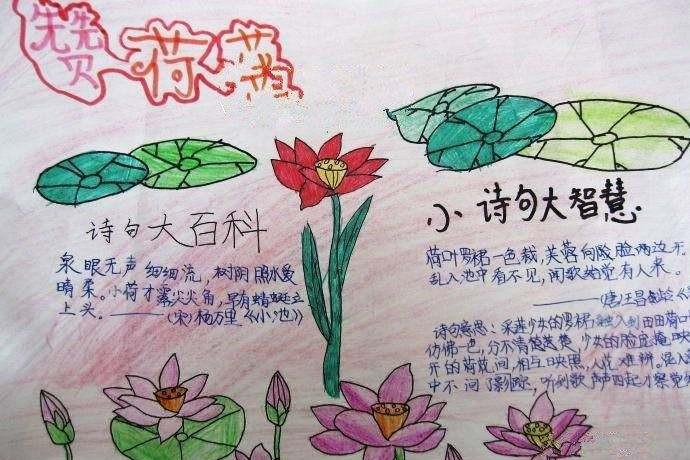 赞荷花
诗句大百科
泉眼无声细细流，树阴照水爱
晴柔。小荷才露尖尖角，早有蜻蜓立
上头。——（宋）杨万里《小池》
小诗句大智慧
荷叶罗裙一色裁，芙蓉向脸两边开
乱入池中看不见，闻歌始觉有人来。
——（唐）王昌龄
诗句意思：采莲少女的罗裙融入到田田荷
仿佛一色，分不清楚，少女的脸庞掩映
开的荷花间，相互映照，人花难辨。
中不间了踪，听到歌声四起才察觉